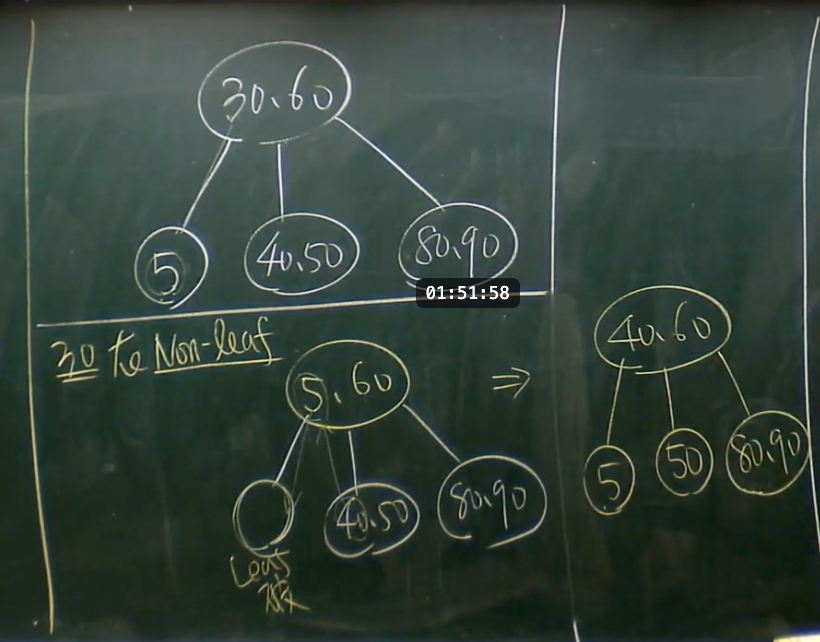 30、60
5
40、50
80、90
01:51:58
30 在 Non-leaf
5、60
40、50
80、90
Leaf
⇒
40、60
5
50
80、90